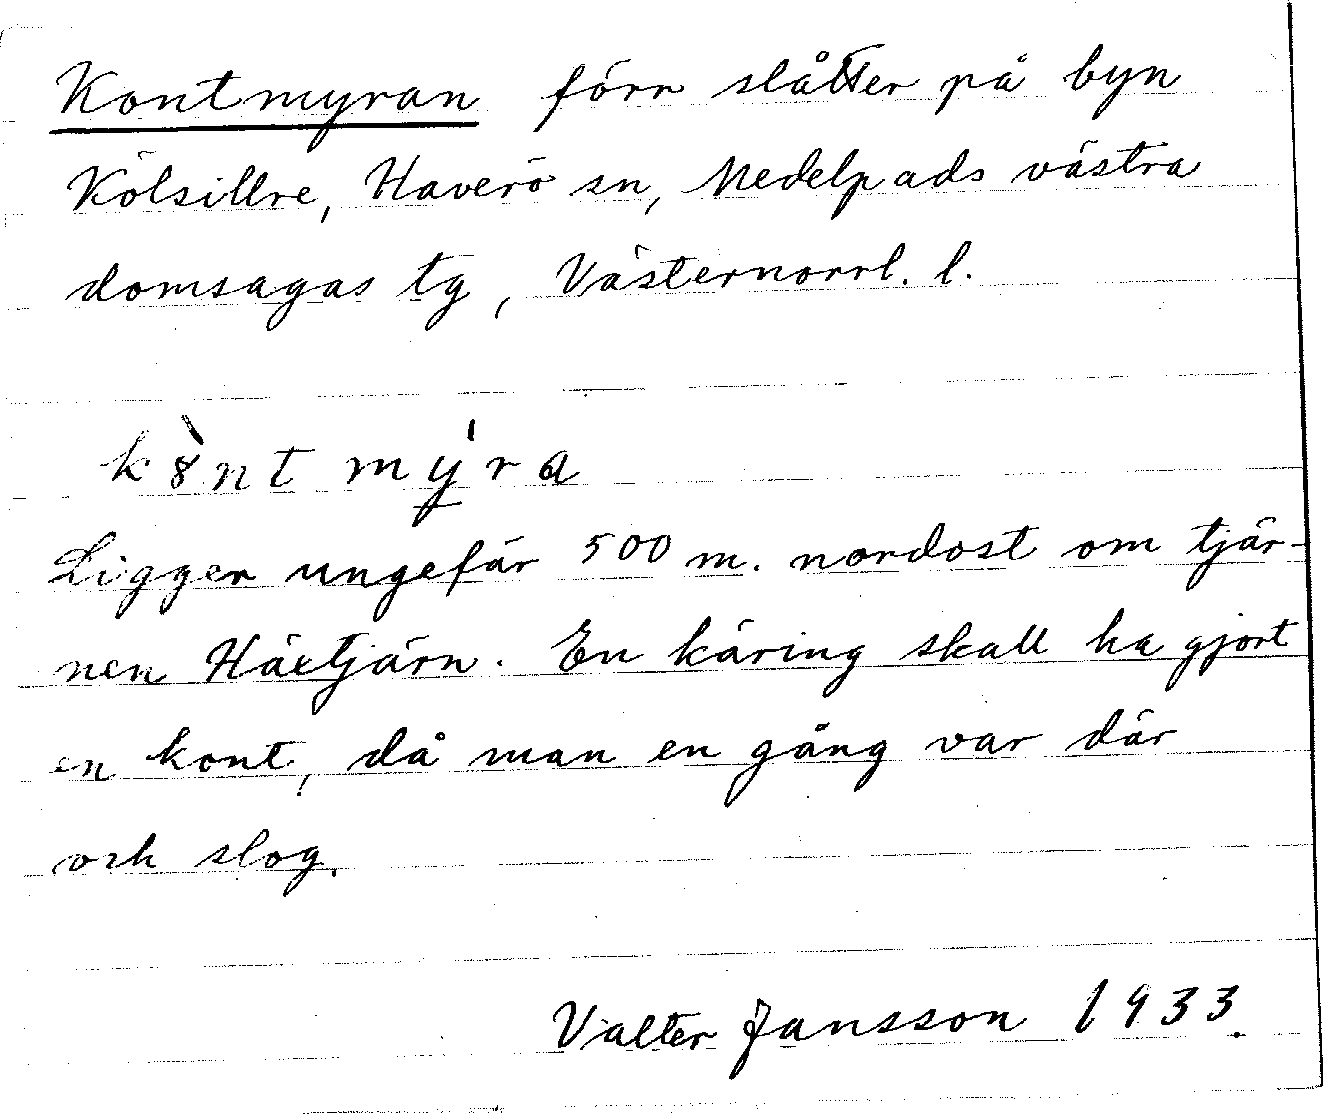 Kontmyran förr slåtter på byn
Kölsillre, Haverö sn, Medelpads västra
domsagas tg, Västernorrl. l.
k8̀nt mýra
Ligger ungefär 500 m. nordost om tjär-
nen Häxtjärn. En käring skall ha gjort
en kont, då man en gång var där
och slog.
Valter Jansson 1933.